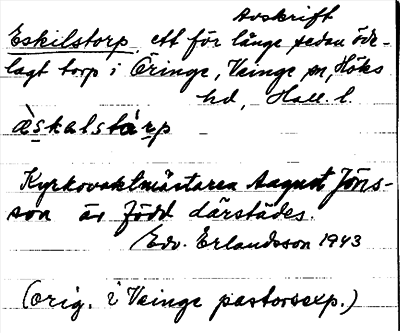 Avskrift
Eskilstorp, ett för länge sedan öde-
lagt torp i Öringe, Veinge sn, Höks
hd, Hall. l.
àskalstár̲p
Kyrkovaktmästaren August Jöns-
son är född därstädes.
Edv. Erlandsson 1943
(orig. i Veinge pastorsexp.)